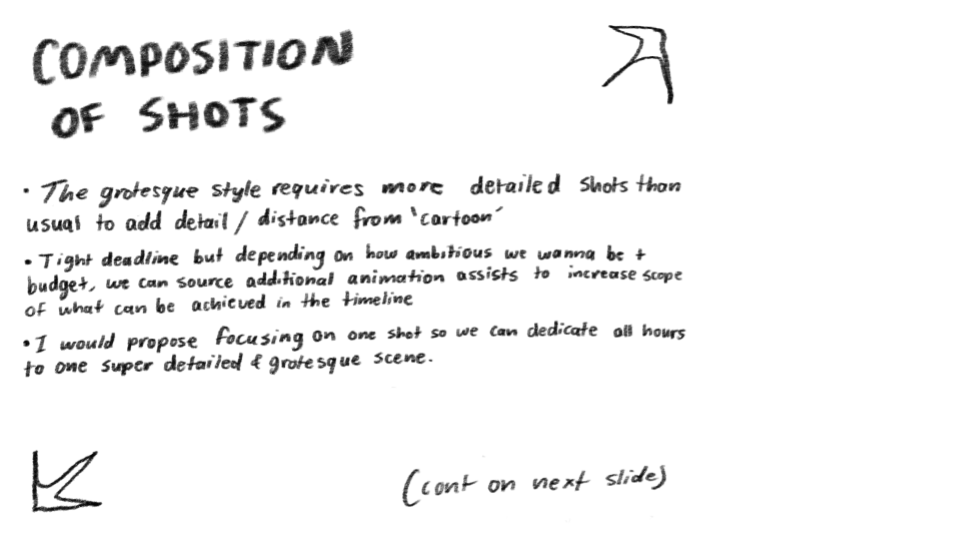 COMPOSITION
OF SHOTS
• The grotesque style requires more detailed shots than
usual to add detail / distance from 'cartoon'
• Tight deadline but depending on how ambitious we wanna be +
budget, we can source additional animation assists to increase scope
of what can be achieved in the timeline
• I would propose focusing on one shot so we can dedicate all hours
to one super detailed & grotesque scene.
(cont on next slide)